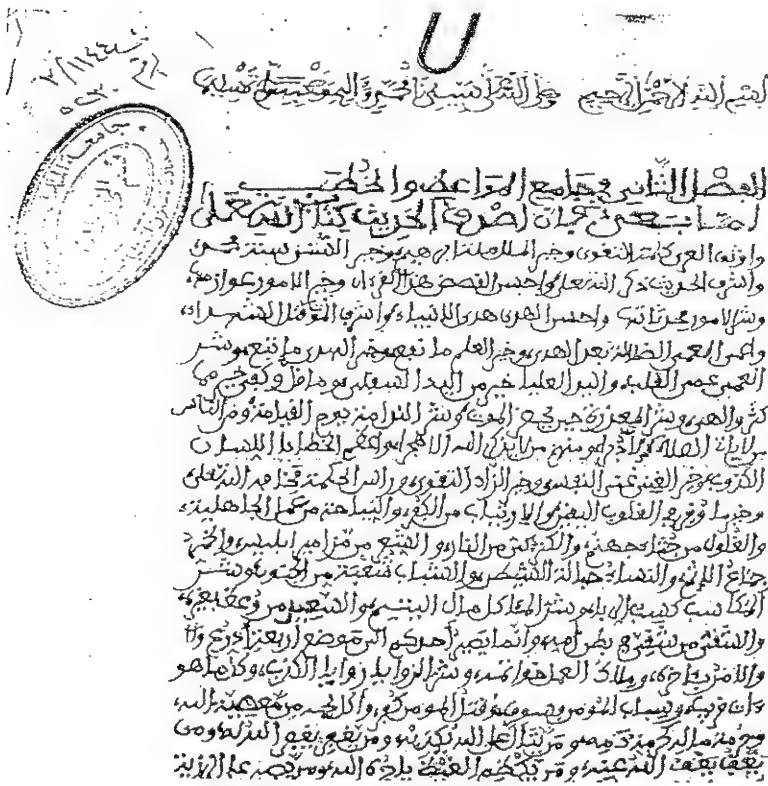 بسم الله الرحمن الرحيم وصلى الله على سيدنا محمد وآله وصحبه وسلم
الفصل الثاني في جامع المواعظ والخطب
أما بعد فإن أصدق الحديث كتاب الله تعلى
وأوثق العرى كلمة التقوى وخير الملل ملة إبراهيم وخير السنن سنة محمد
وأشرف الحديث ذكر الله تعلى وأحسن القصص هذا القرءان وخير الأمور عوازمها
وشر الأمور محدثاتها وأحسن الهدي هدي الأنبياء وأشرف القتل الشهداء
وأعمى العمى الضلالة بعد الهدى وخير العلم ما نفع وخير الهدى ما اتبع وشر
العمى عمى القلب واليد العليا خير من اليد السفلى وما قل وكفى خير مما
كثر وألهى وشر المعذرة حين يحضر الموت وشر الندامة يوم القيامة ومن الناس
من لا ياتي الصلاة إلا دبرا ومنهم من لا يذكر الله إلا هجرا وأعظم الخطايا اللسان
الكذوب وخير الغنى غنى النفس وخير الزاد التقوى ورأس الحكمة مخافة الله تعلى
وخير ما وقر في القلوب اليقين والارتياب من الكفر والنياحة من عمل الجاهلية
والغلول من جثاء جهنم والكنز كي من النار والشعر من مزامير إبليس والخمر
جماع الإثم والنساء حبالة الشيطان والشباب شعبة من الجنون وشر
المكاسب كسب الربا وشر المآكل مال اليتيم والسعيد من وعظ بغيره
والشقي من شقي في بطن أمه وإنما يصير أحدكم إلى موضع أربعة أذرع
والأمر بآخره وملاك العمل خواتمه وشر الروايا روايا الكذب وكل ما هو
ءات قريب وسباب المومن فسوق وقتال المومن كفر وأكل لحمه من معصية الله
وحرمة ماله كحرمة دمه ومن يتأل على الله يكذبه ومن يغفر يغفر الله له ومن
يعف يعف الله عنه ومن يكظم الغيظ ياجره الله ومن يصبر على الرزية